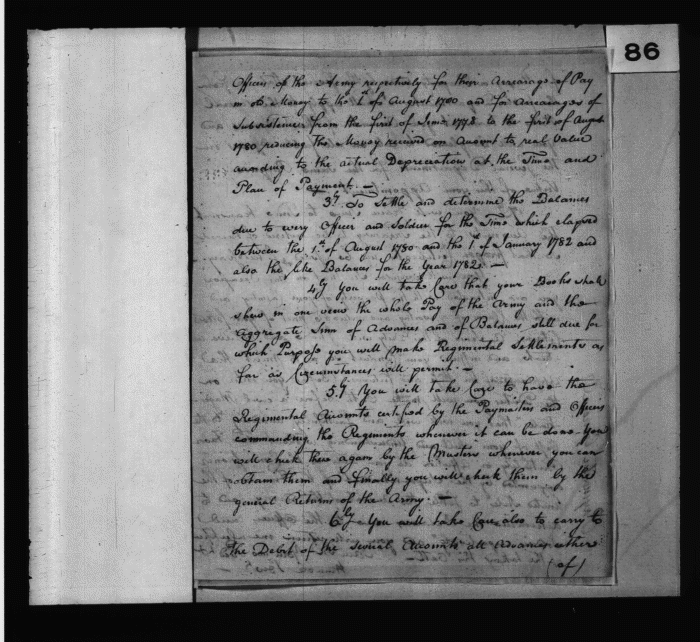 86
Officers of the Army respectively for their Arrearages of Pay
in old Money to the 1st of August 1780 and for Arrearages of
Subsistence from the first of June 1778 to the first of August
1780 reducing the Money received on Account to real Value
according to the actual Depreciation at the Time and
Place of Payment. —
3dly To Settle and determine the Balances
due to every Officer and Soldier for the Time which elapsed
between the 1st of August 1780 and the 1st of January 1782 and
also the like Balances for the Year 1782. —
4ly You will take Care that your Books shall
shew in one view the whole Pay of the Army and the
Aggregate Sum of Advances and of Balances still due for
which Purpose you will make Regimental Settlements as
far as Circumstances will permit. —
5ly You will take Care to have the
Regimental Accounts certified by the Paymasters and Officers
commanding the Regiments whenever it can be done. You
will check these again by the Musters whenever you can
obtain them and finally you will check them by the
general Returns of the Army. —
6ly You will take Care also to carry to
the Debit of the several Accounts all Advances either
(of)